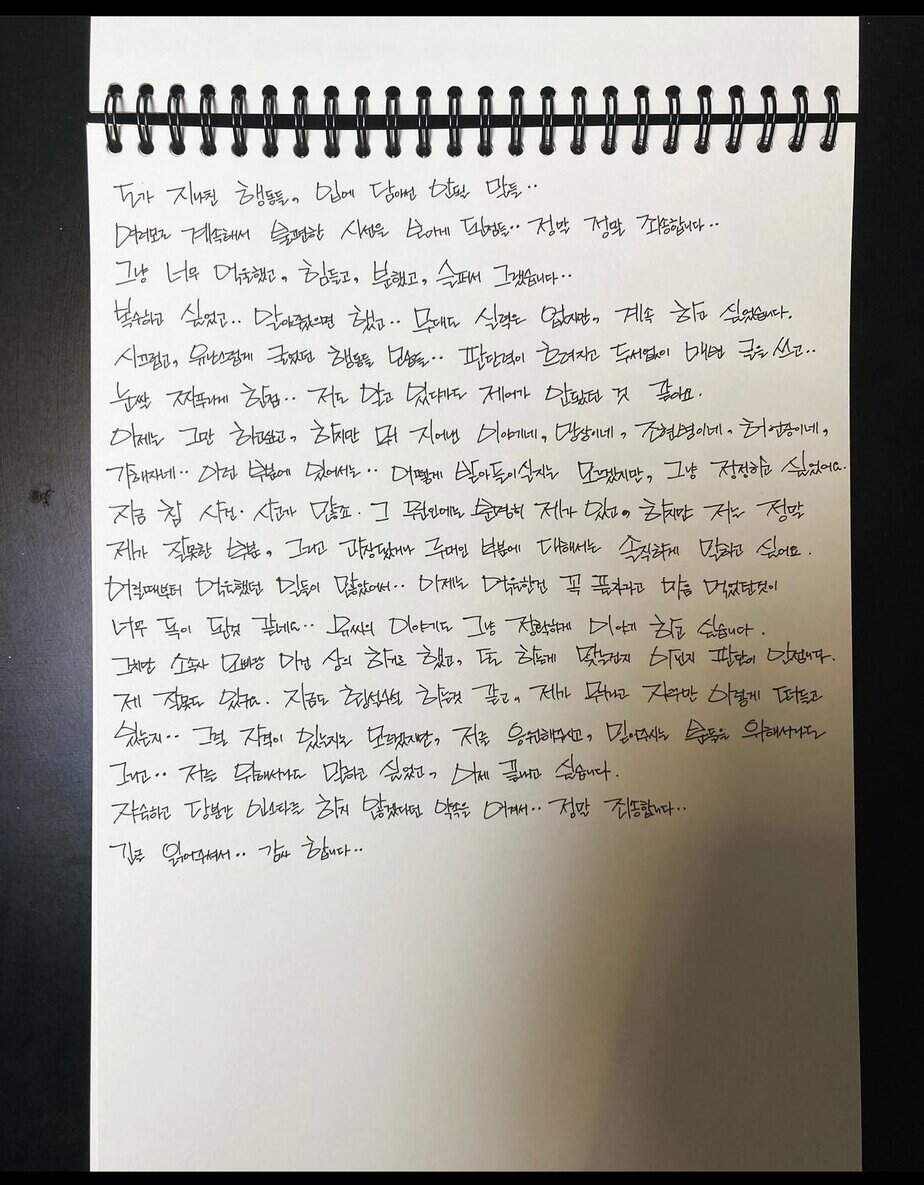 도가 지나친 행동들, 입에 담아선 안될 말들..
여러모로 계속해서 불편한 시선을 보이게 된점들.. 정말 정말 죄송합니다..
그냥 너무 억울했고, 힘들고, 분했고, 슬퍼서 그랬습니다..
복수하고 싶었고.. 알아줬으면 했고.. 무대도 실력은 없지만, 계속 하고 싶었습니다.
시끄럽고, 유난스럽게 굴었던 행동들 모습들.. 판단력이 흐려지고 두서없이 매번 글을 쓰고..
눈쌀 찌푸리게 한점.. 저도 알고 있다가도 제어가 안됐던 것 같아요.
이제는 그만 하고싶고, 하지만 뭐 지어낸 이야기네, 망상이네, 조현병이네, 허언증이네,
가해자네.. 이런 부분에 있어서는.. 어떻게 받아들이실지는 모르겠지만, 그냥 정정하고 싶었어요.
지금 참 사건·사고가 많죠. 그 원인에는 분명히 제가 있고, 하지만 저는 정말
제가 잘못한 부분, 그리고 과장됐거나 루머인 부분에 대해서는 솔직하게 말하고 싶어요.
어릴때부터 억울했던 일들이 많았어서.. 이제는 억울한건 꼭 풀자라고 마음 먹었던것이
너무 독이 된것 같네요.. 유씨의 이야기도 그냥 정확하게 이야기 하고 싶습니다.
그치만 소속사 오빠랑 이건 상의 하기로 했고, 또 하는게 맞는건지 이런지 판단이 안섭니다.
제 잘못도 있구요. 지금도 횡설수설 하는것 같고, 제가 뭐라고 자꾸만 이렇게 떠들고
있는지.. 그럴 자격이 있는지는 모르겠지만, 저를 응원해주시고, 믿어주시는 분들을 위해서라도
그리고.. 저를 위해서라도 말하고 싶었고, 이제 끝내고 싶습니다.
자숙하고 당분간 인스타를 하지 않겠다던 약속을 어겨서.. 정말 죄송합니다..
긴글 읽어주셔서.. 감사 합니다..